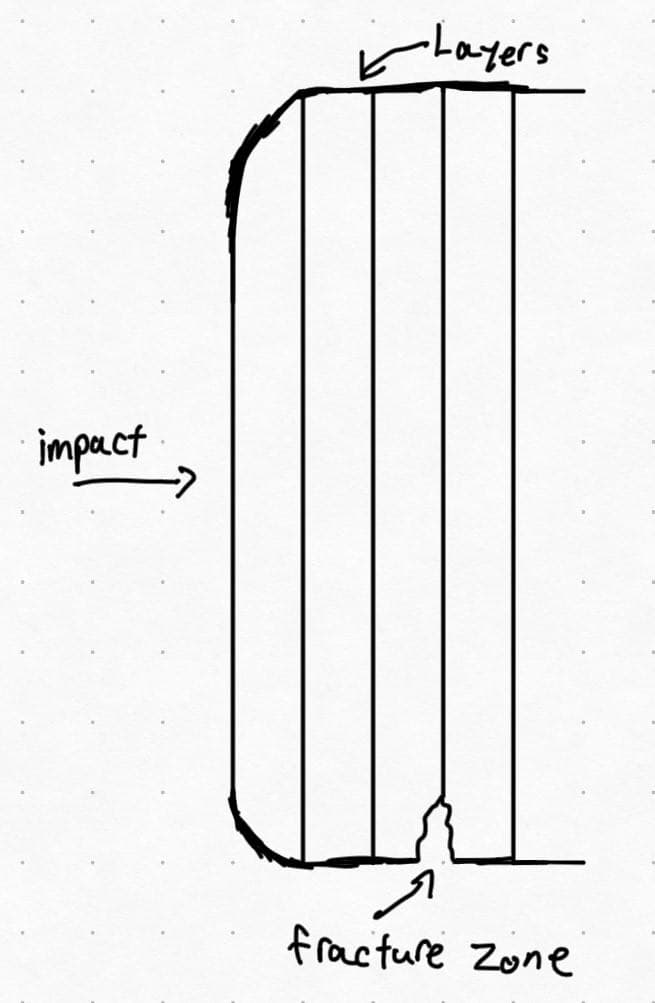 Layers
impact
fracture zone